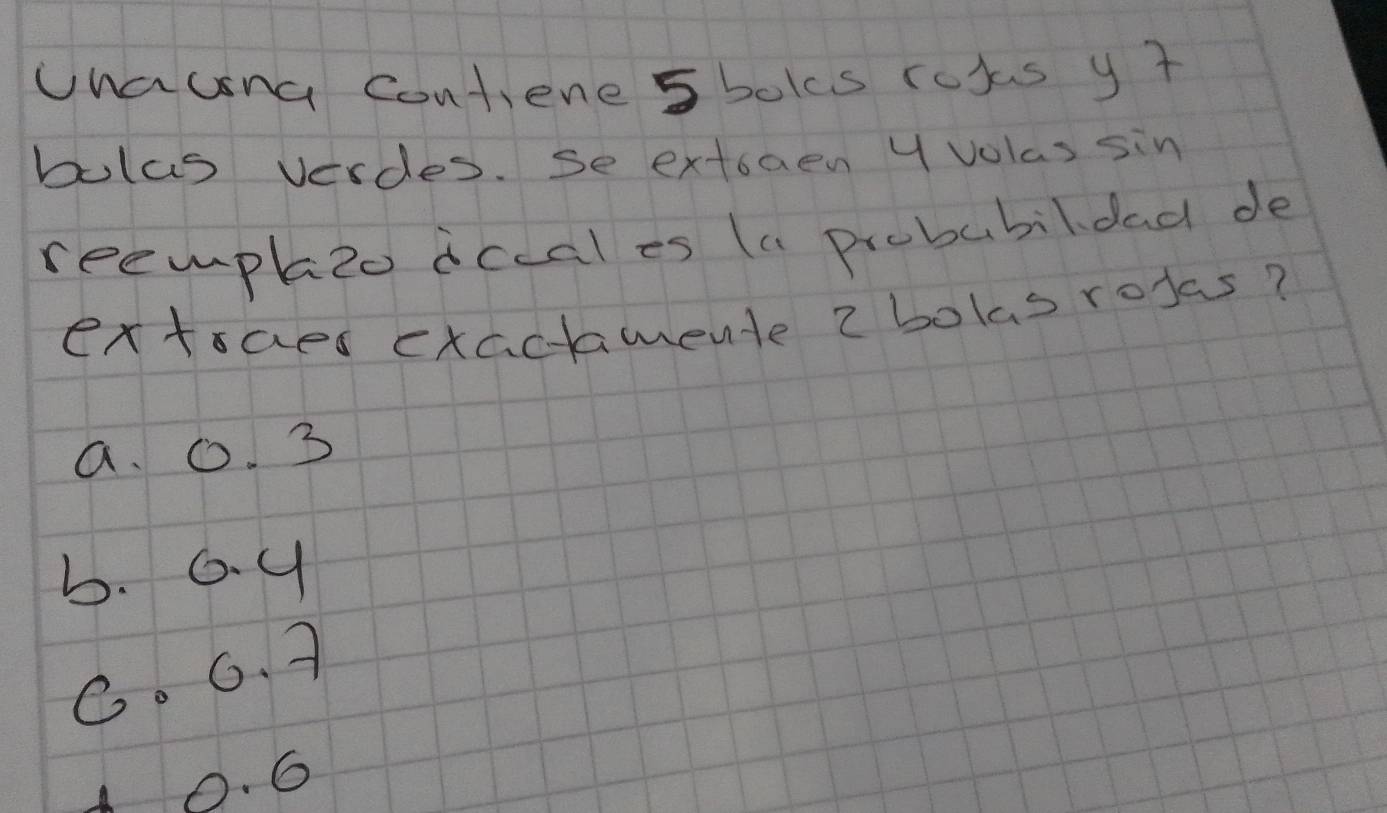 Una urna contiene 5 bolas rojas y 7
bolas verdes. Se extraen 4 volas sin
reemplazo ¿cual es la probabilidad de
extraer exactamente 2 bolas rojas?
a. 0.3
b. 0.4
c. 0.7
d 0.6